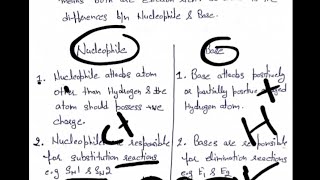 means both are
differences b/n Nucleophile & Base.
Nucleophile
Base
1. Nucleophile attacks atom
other than Hydrogen & the
atom should possess +ve
charge.
1. Base attacks positively
or partially positive
Hydrogen atom.
C+
H+
2. Nucleophiles are responsible
for substitution reactions
e.g SN1 & SN2
2. Bases are responsible
for elimination reactions
e.g E1 & E2